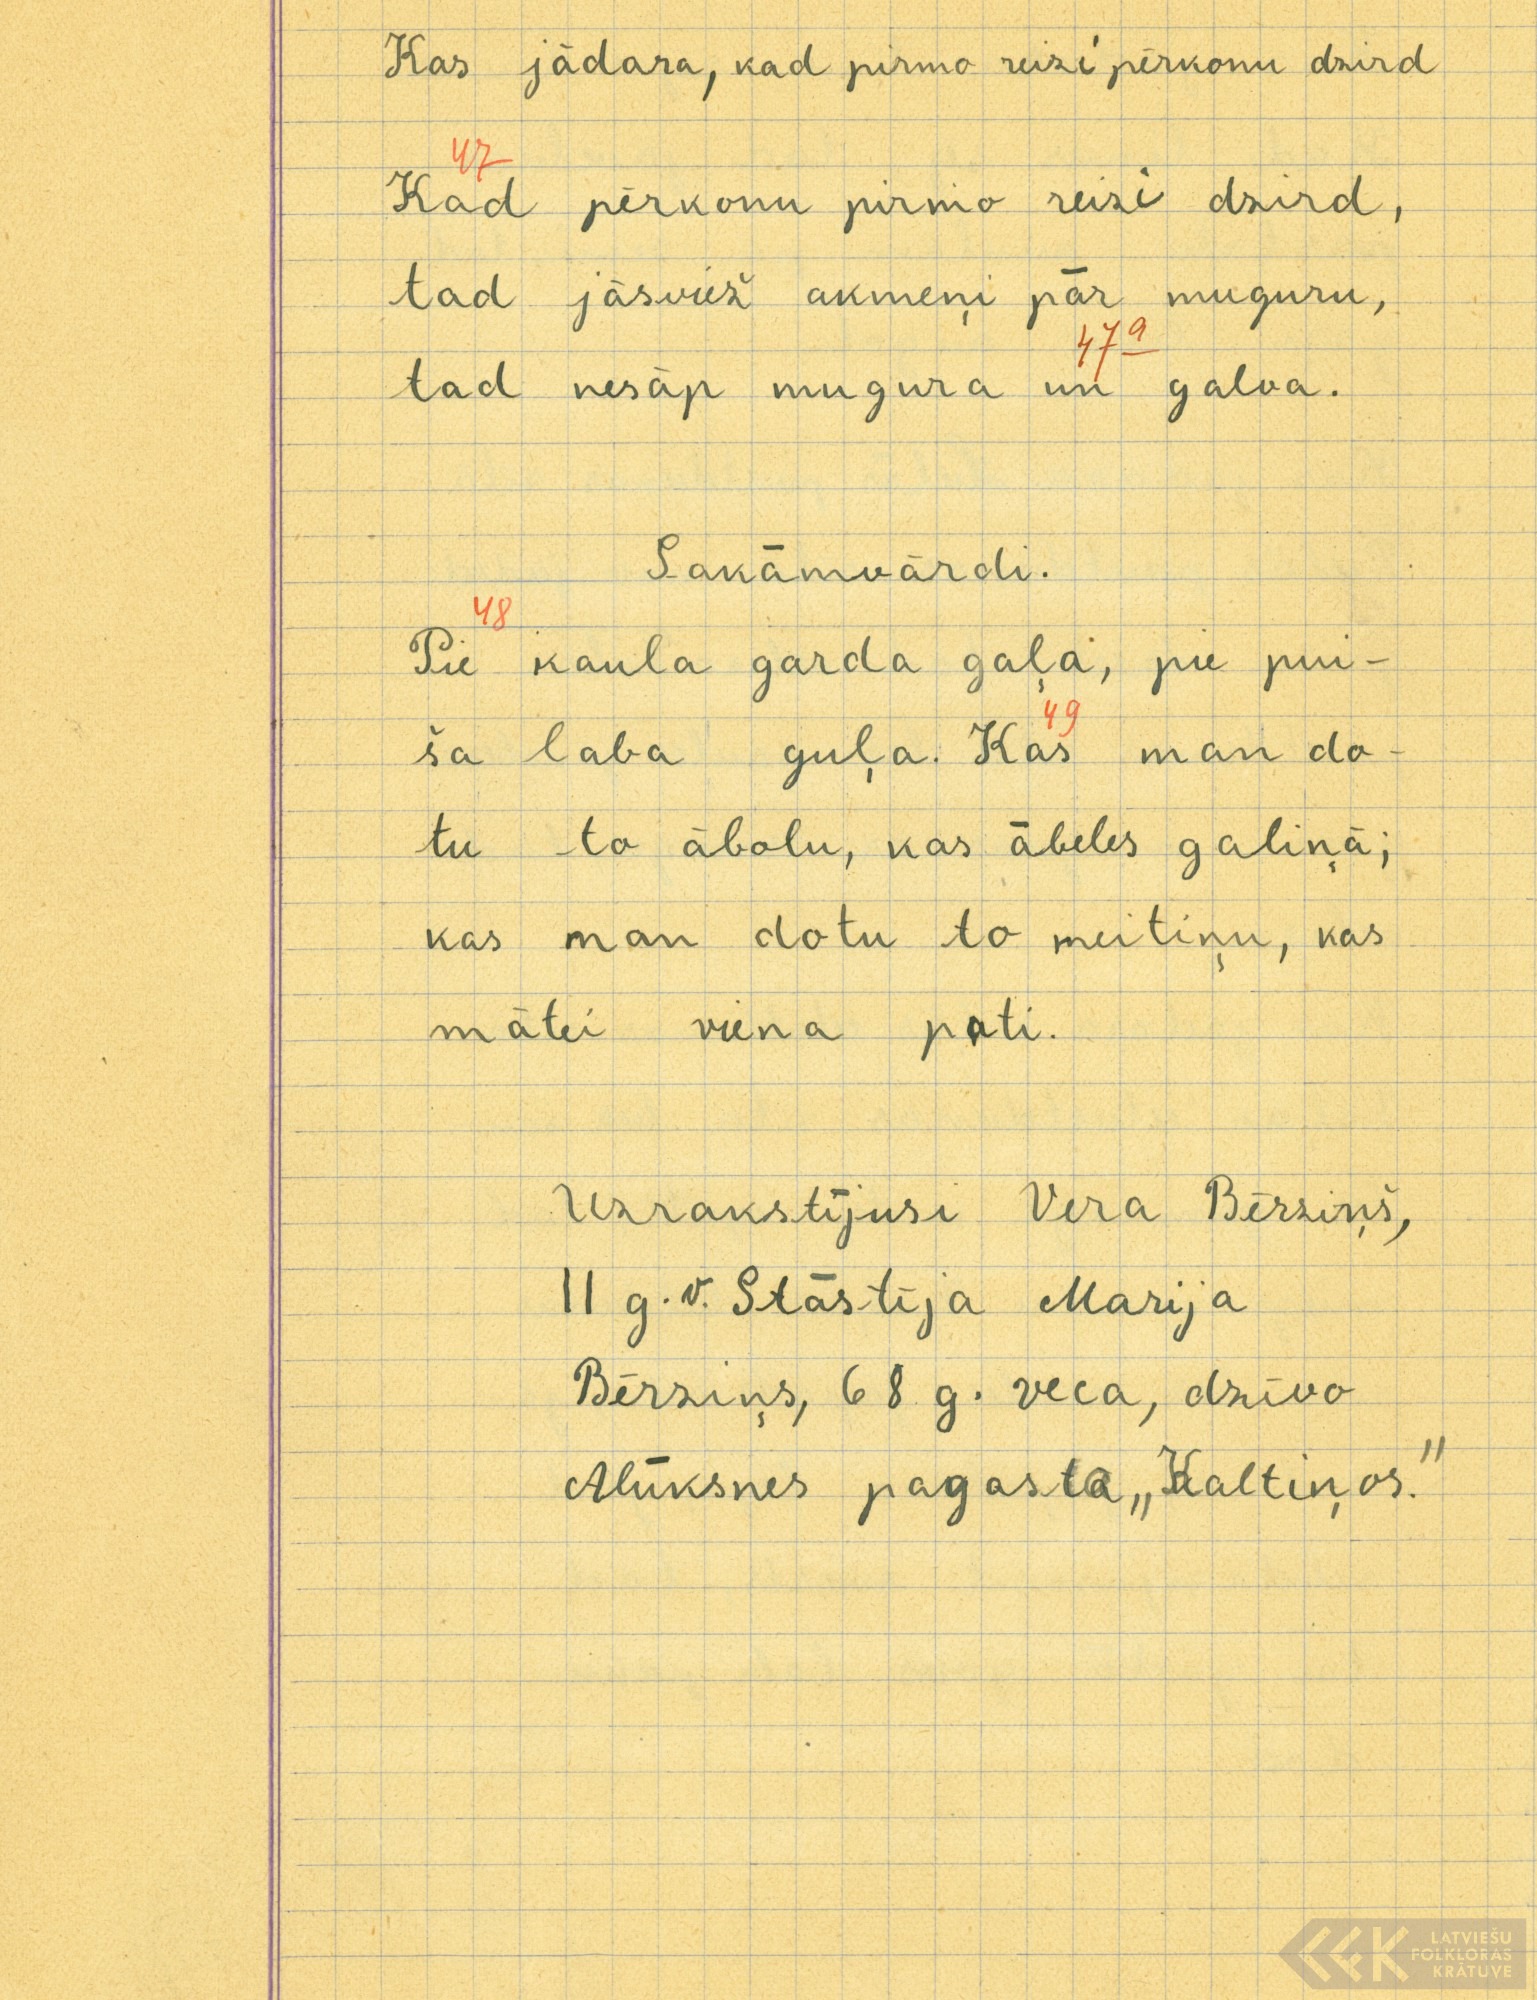 Kas jādara, kad pirmo reizi pērkonu dzird
47
Kad pērkonu pirmo reizi dzird,
tad jāsviež akmeņi pār muguru,
47a
tad nesāp mugura un galva.
Sakāmvārdi.
48
Pie kaula garda gaļa, pie pui-
49
ša laba guļa. Kas man do-
tu to ābolu, kas ābeles galiņā;
kas man dotu to meitiņu, kas
mātei viena pati.
Uzrakstījusi Vera Bērziņš,
11 g. v. Stāstīja Marija
Bērziņs, 68 g. veca, dzīvo
Alūksnes pagasta „Kaltiņos."
LATVIEŠU
FOLKLORAS
KRĀTUVE